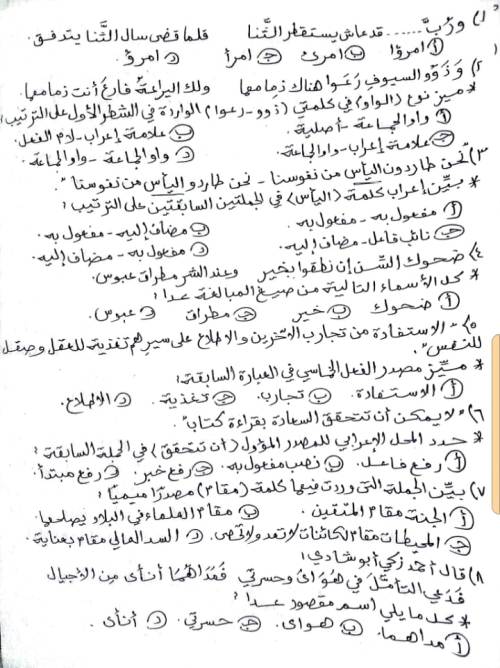 ١) ورُبَّ ...... قد عاش يستقطر الثَّنا    فلما قضى سال الثَّنا يتدفق.
أ امرؤا    ب امرئ    ج امرأ    د امرؤ.
٢) وَذَوُو السيوفِ رَعَوا هناك زمامها    ولك اليراعةُ فارعَ أنت زمامها.
* ميز نوع (الواو) في كلمتي (ذوو - رعوا) الواردة في الشطر الأول على الترتيب:
أ واو الجماعة - أصلية.    ب علامة إعراب - لام الفعل.
ج علامة إعراب - واو الجماعة.    د واو الجماعة - واو الجماعة.
٣) "نحن طاردون اليأس من نفوسنا - نحن طاردو اليأس من نفوسنا".
* بيِّن إعراب كلمة (اليأس) في الجملتين السابقتين على الترتيب:
أ مفعول به - مفعول به.    ب مضاف إليه - مفعول به.
ج نائب فاعل - مضاف إليه.    د مفعول به - مضاف إليه.
٤) ضحوك السِّن إن نطقوا بخير    وعند الشر مطراق عبوس.
* كل الأسماء التالية من صيغ المبالغة عدا:
أ ضحوك    ب خير    ج مطراق    د عبوس.
٥) "الاستفادة من تجارب الآخرين والاطلاع على سيرهم تغذية للعقل وصقل
للنفس".
* ميِّز مصدر الفعل الخماسي في العبارة السابقة:
أ الاستفادة.    ب تجارب.    ج تغذية.    د الاطلاع.
٦) "لا يمكن أن تتحقق السعادة بقراءة كتاب".
* حدد المحل الإعرابي للمصدر المؤول (أن تتحقق) في الجملة السابقة:
أ رفع فاعل.    ب نصب مفعول به.    ج رفع خبر.    د رفع مبتدأ.
٧) بيِّن الجملة التي وردت فيها كلمة (مقام) مصدرًا ميميًا:
أ الجنة مقام المتقين.    ب مقام العلماء في البلاد يصلحها.
ج المحيطات مقام لكائنات لا تعد ولا تحصى.    د السد العالي مقام بعناية.
٨) قال أحمد زكي أبو شادي:
فَدَعِي التأمُّلَ في هَوَايَ وحسرتي    فَمَدَاهُمَا أنأى من الأجيال
* كل ما يلي اسم مقصور عدا:
أ مداهما.    ب هواى.    ج حسرتي.    د أنأى.